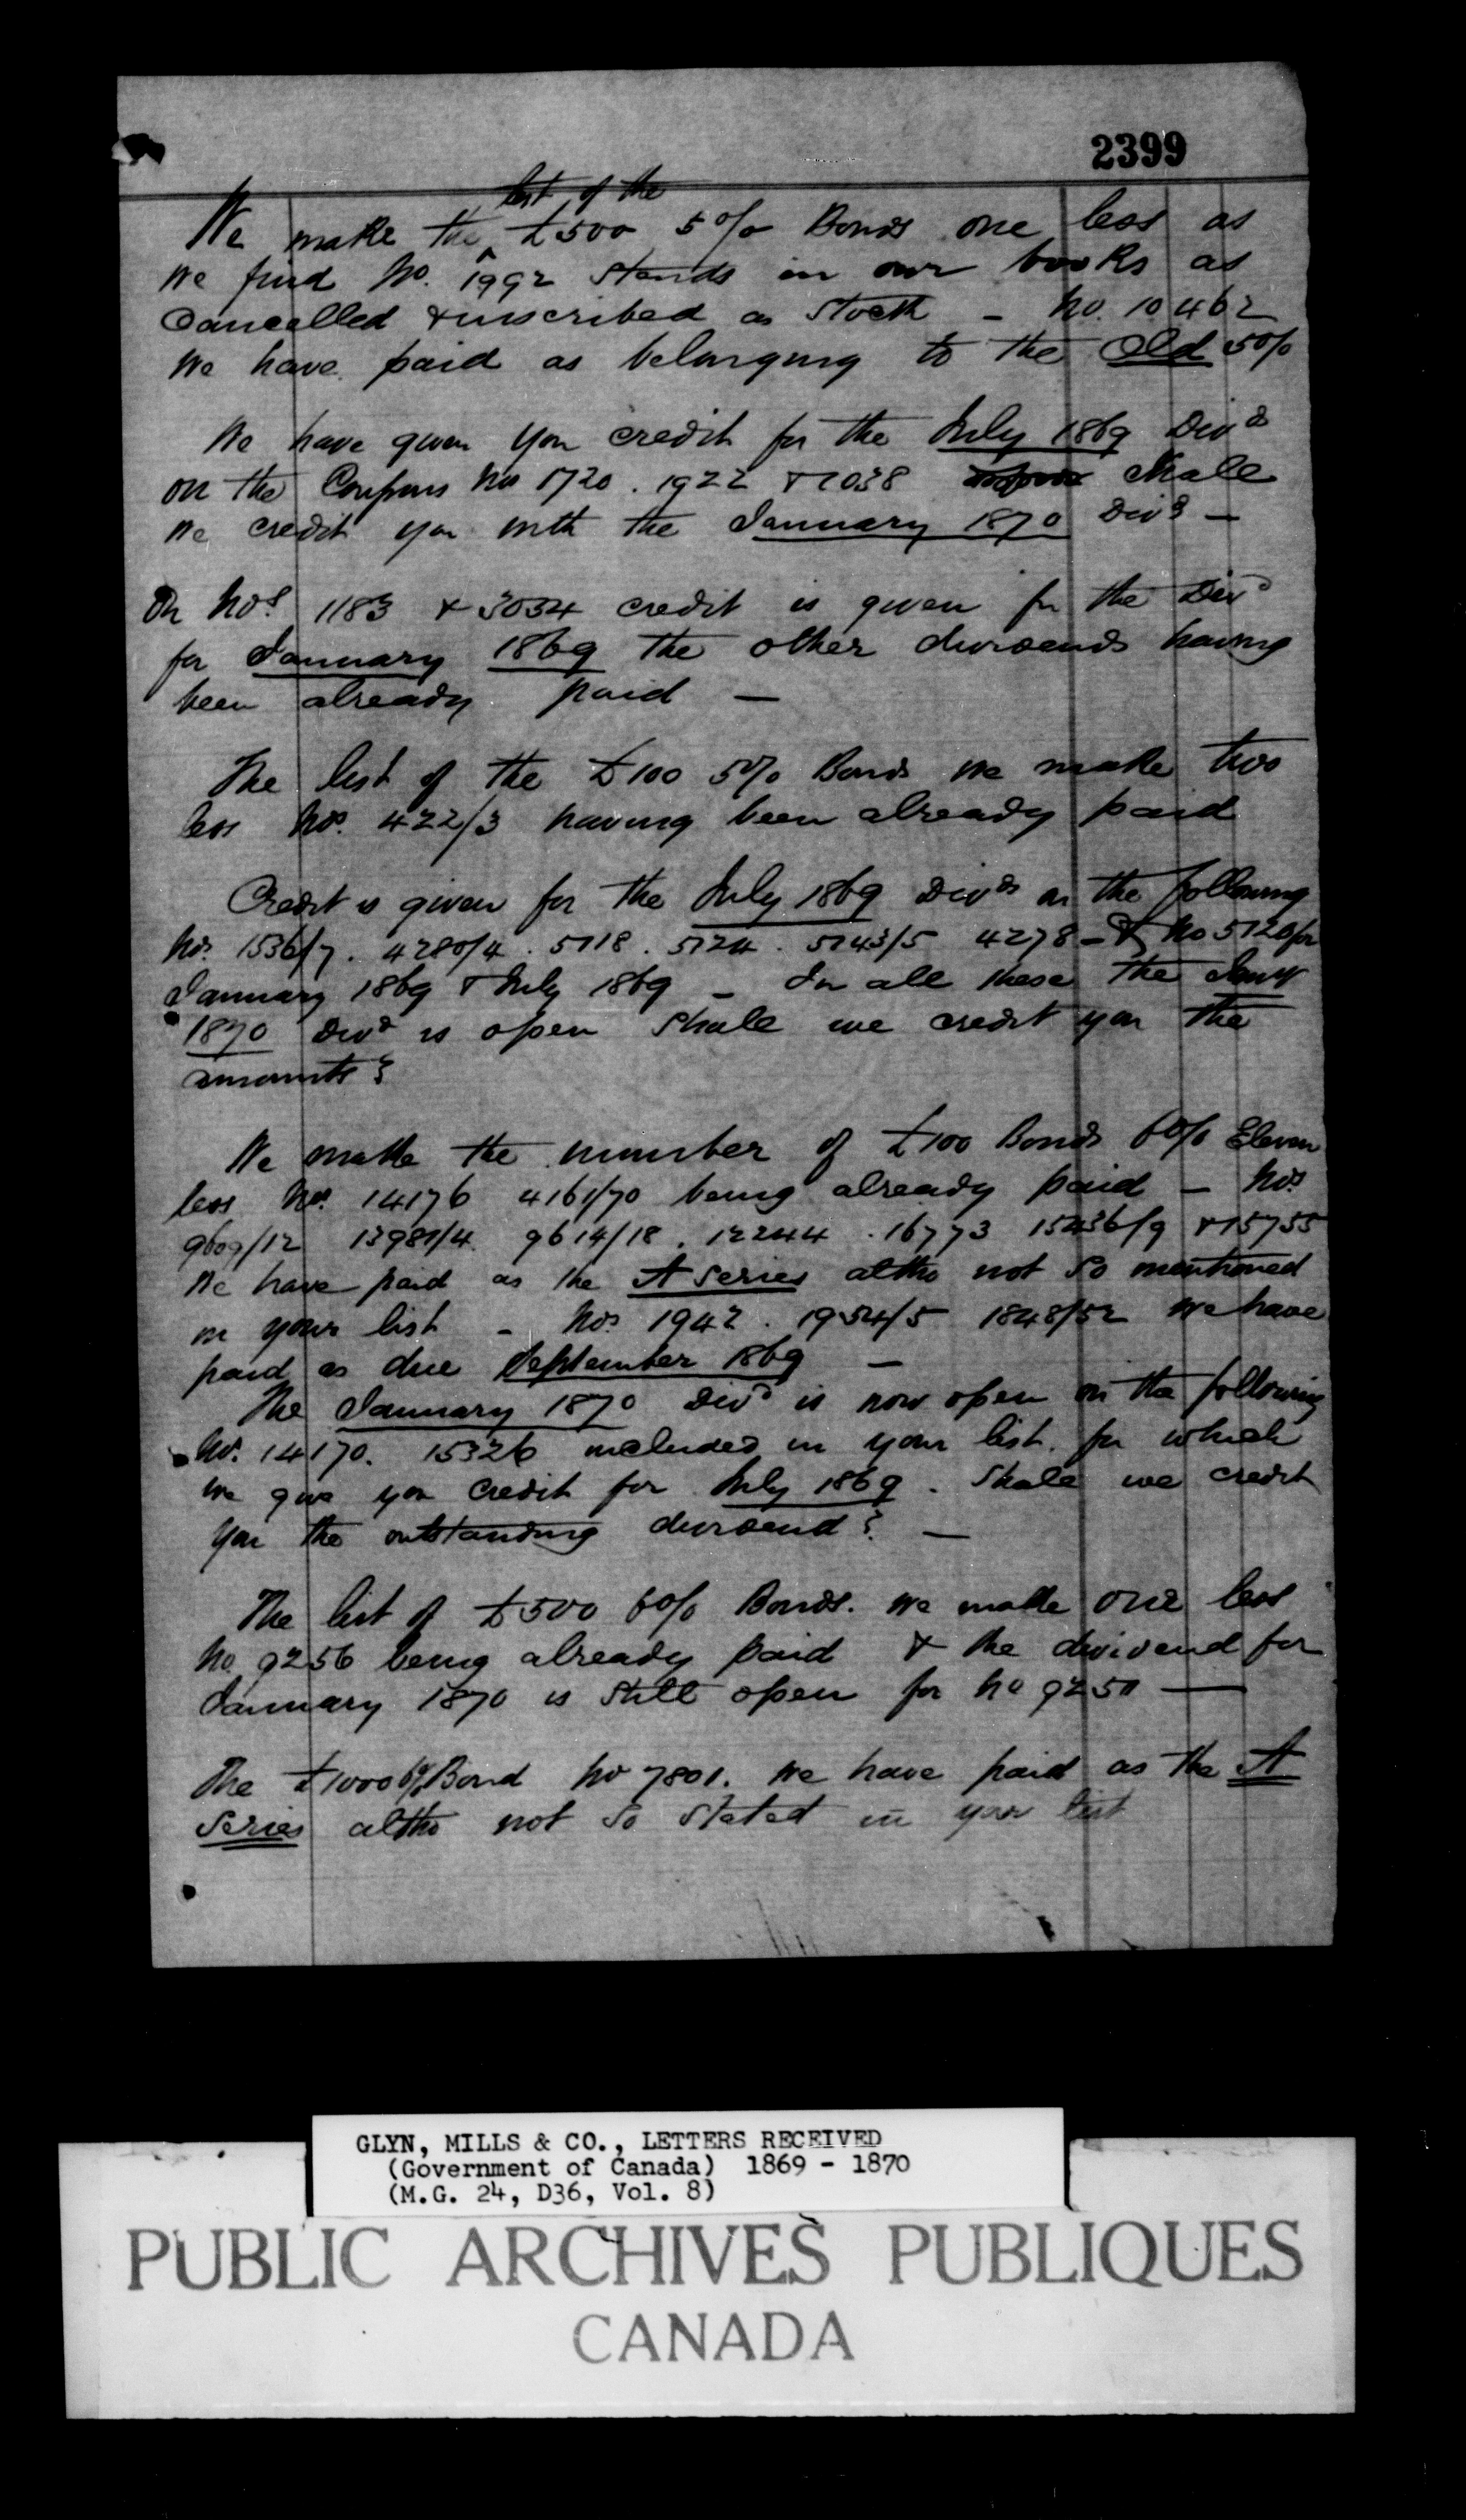 2399
list of the
We make the £500 5% Bonds one less as
we find No. 1992 stands in our books as
Cancelled & inscribed as Stock – No. 10462
we have paid as belonging to the Old 5%
We have given you credit for the July 1869 Divd
on the Coupons Nos 1720 . 1922 & 2038 Shall
we credit you with the January 1870 Divd –
On Nos 1183 & 3034 credit is given for the Divd
for January 1869 the other dividends having
been already paid –
The list of the £100 5% Bonds we make two
less Nos. 422/3 having been already paid
Credit is given for the July 1869 Divds on the following
Nos. 1536/7 . 4280/4 . 5118 . 5124 . 5143/5 4278 – & No 5120 for
January 1869 & July 1869 – In all these the Jany
1870 Divd is open Shall we credit you the
amounts?
We make the number of £100 Bonds 6% Eleven
less Nos. 14176 4161/70 being already paid – Nos
9609/12 13981/4 . 9614/18 . 12244 . 16773 15236/9 & 15755
we have paid as the A Series altho not so mentioned
in your list – Nos. 1942 . 1954/5 1848/52 we have
paid as due September 1869 –
The January 1870 Divd is now open on the following
Nos. 14170. 15326 included in your list for which
we give you credit for July 1869 . Shall we credit
you the outstanding dividend? –
The list of £500 6% Bonds. we make one less
No 9256 being already paid & the dividend for
January 1870 is still open for No 9250 –
The £1000 6% Bond No 7801. we have paid as the A
Series altho not so stated in your list
GLYN, MILLS & CO., LETTERS RECEIVED
(Government of Canada) 1869 - 1870
(M.G. 24, D36, Vol. 8)
PUBLIC ARCHIVES PUBLIQUES
CANADA